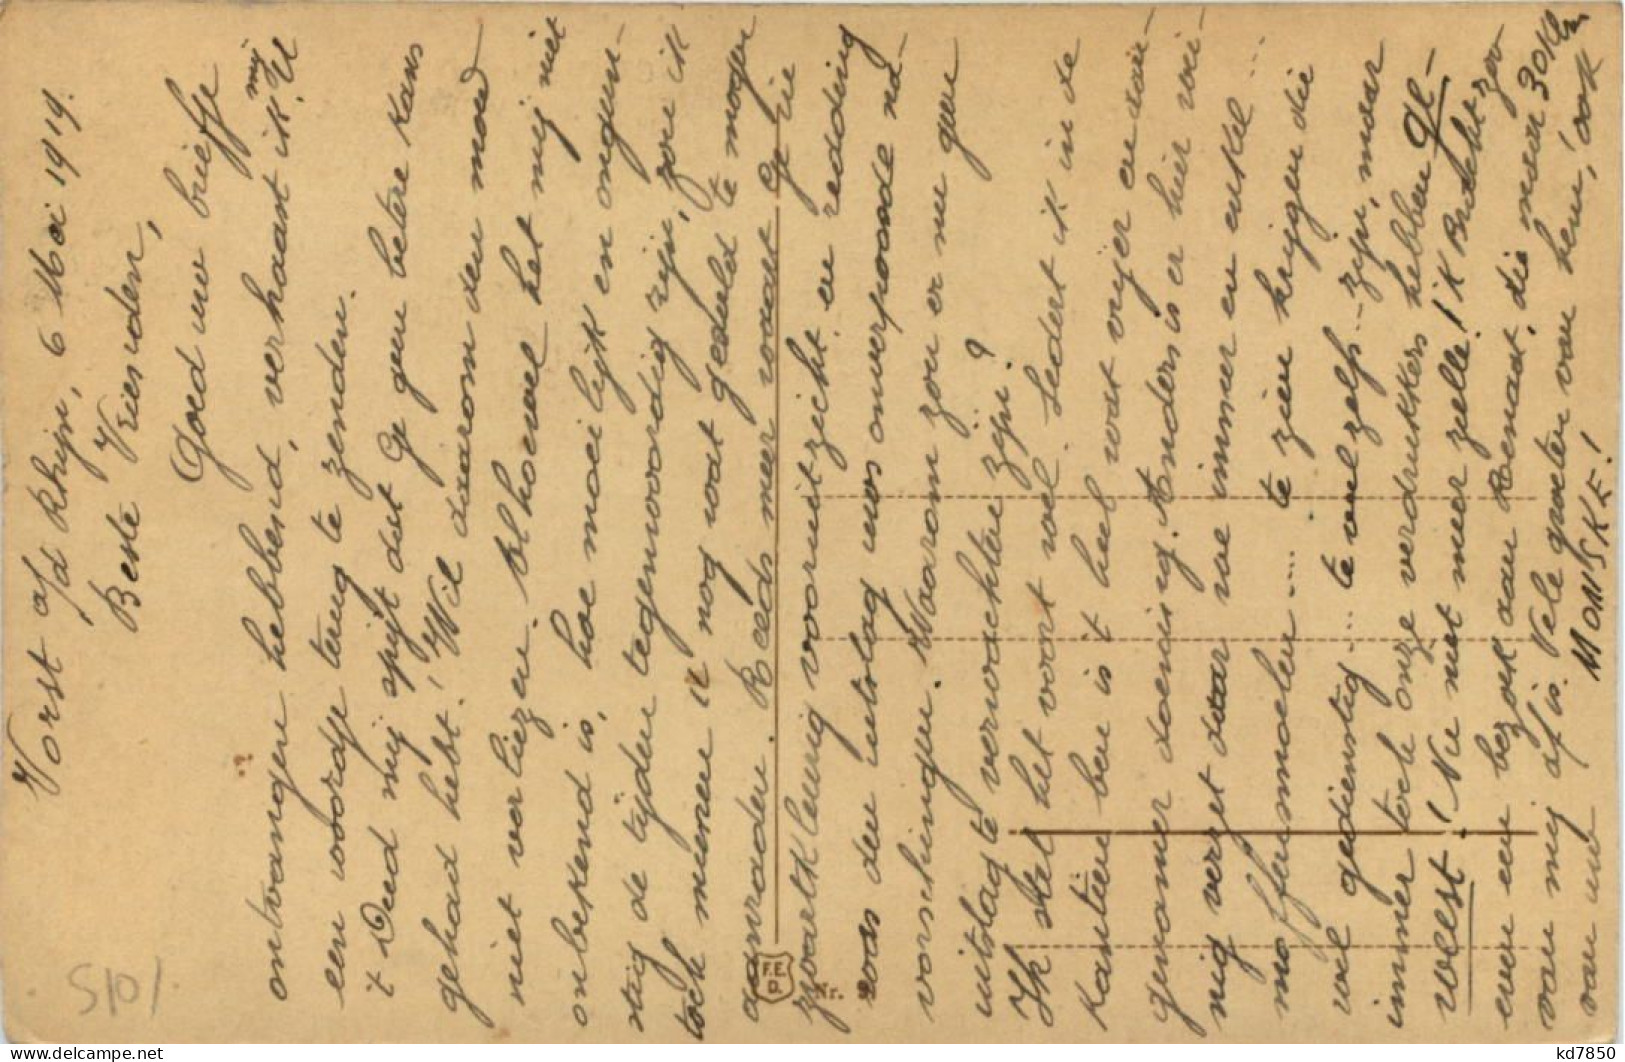 Vorst a/d Rhijn, 6 Mei 1919.
Beste Vrienden,
Goed uw briefje
ontvangen hebbend, verhaast ik mij U
een woordje terug te zenden.
't Deed mij spijt dat Ge geen betere kans
gehad hebt! Wil daarom den moed
niet verliezen. Alhoewel het mij niet
onbekend is, hoe moeilijk en ongun-
stig de tijden tegenwoordig zijn, zou ik
toch meenen U nog wat geduld te mogen
aanraden. Reeds meer waart Ge zie
zwartkleurig vooruitzicht en redding
was den uitslag uws onverpoosde na-
vorschingen. Waarom zou er nu geen
uitslag te verwachten zijn?
Ik stel het voort wel. Sedert ik in de
Kantien ben is it heel wat vrijer en aan-
genamer doening. Anders is er hier wei-
nig verzet daar we immer en enkel ...
moffenmoelen .... te zien krijgen die
wel gedienstig ... te veel zelfs ... zijn, maar
immer toch onze verdrukkers hebben ge-
weest! Nu niet meer zulle! ik Bracht zoo
even een bezoek aan Renaat, die maar 30 Klm
van mij af is. Vele groeten van hem, ook
van uw MONSKE!
F.E.P.
Nr.
S101
kd7850